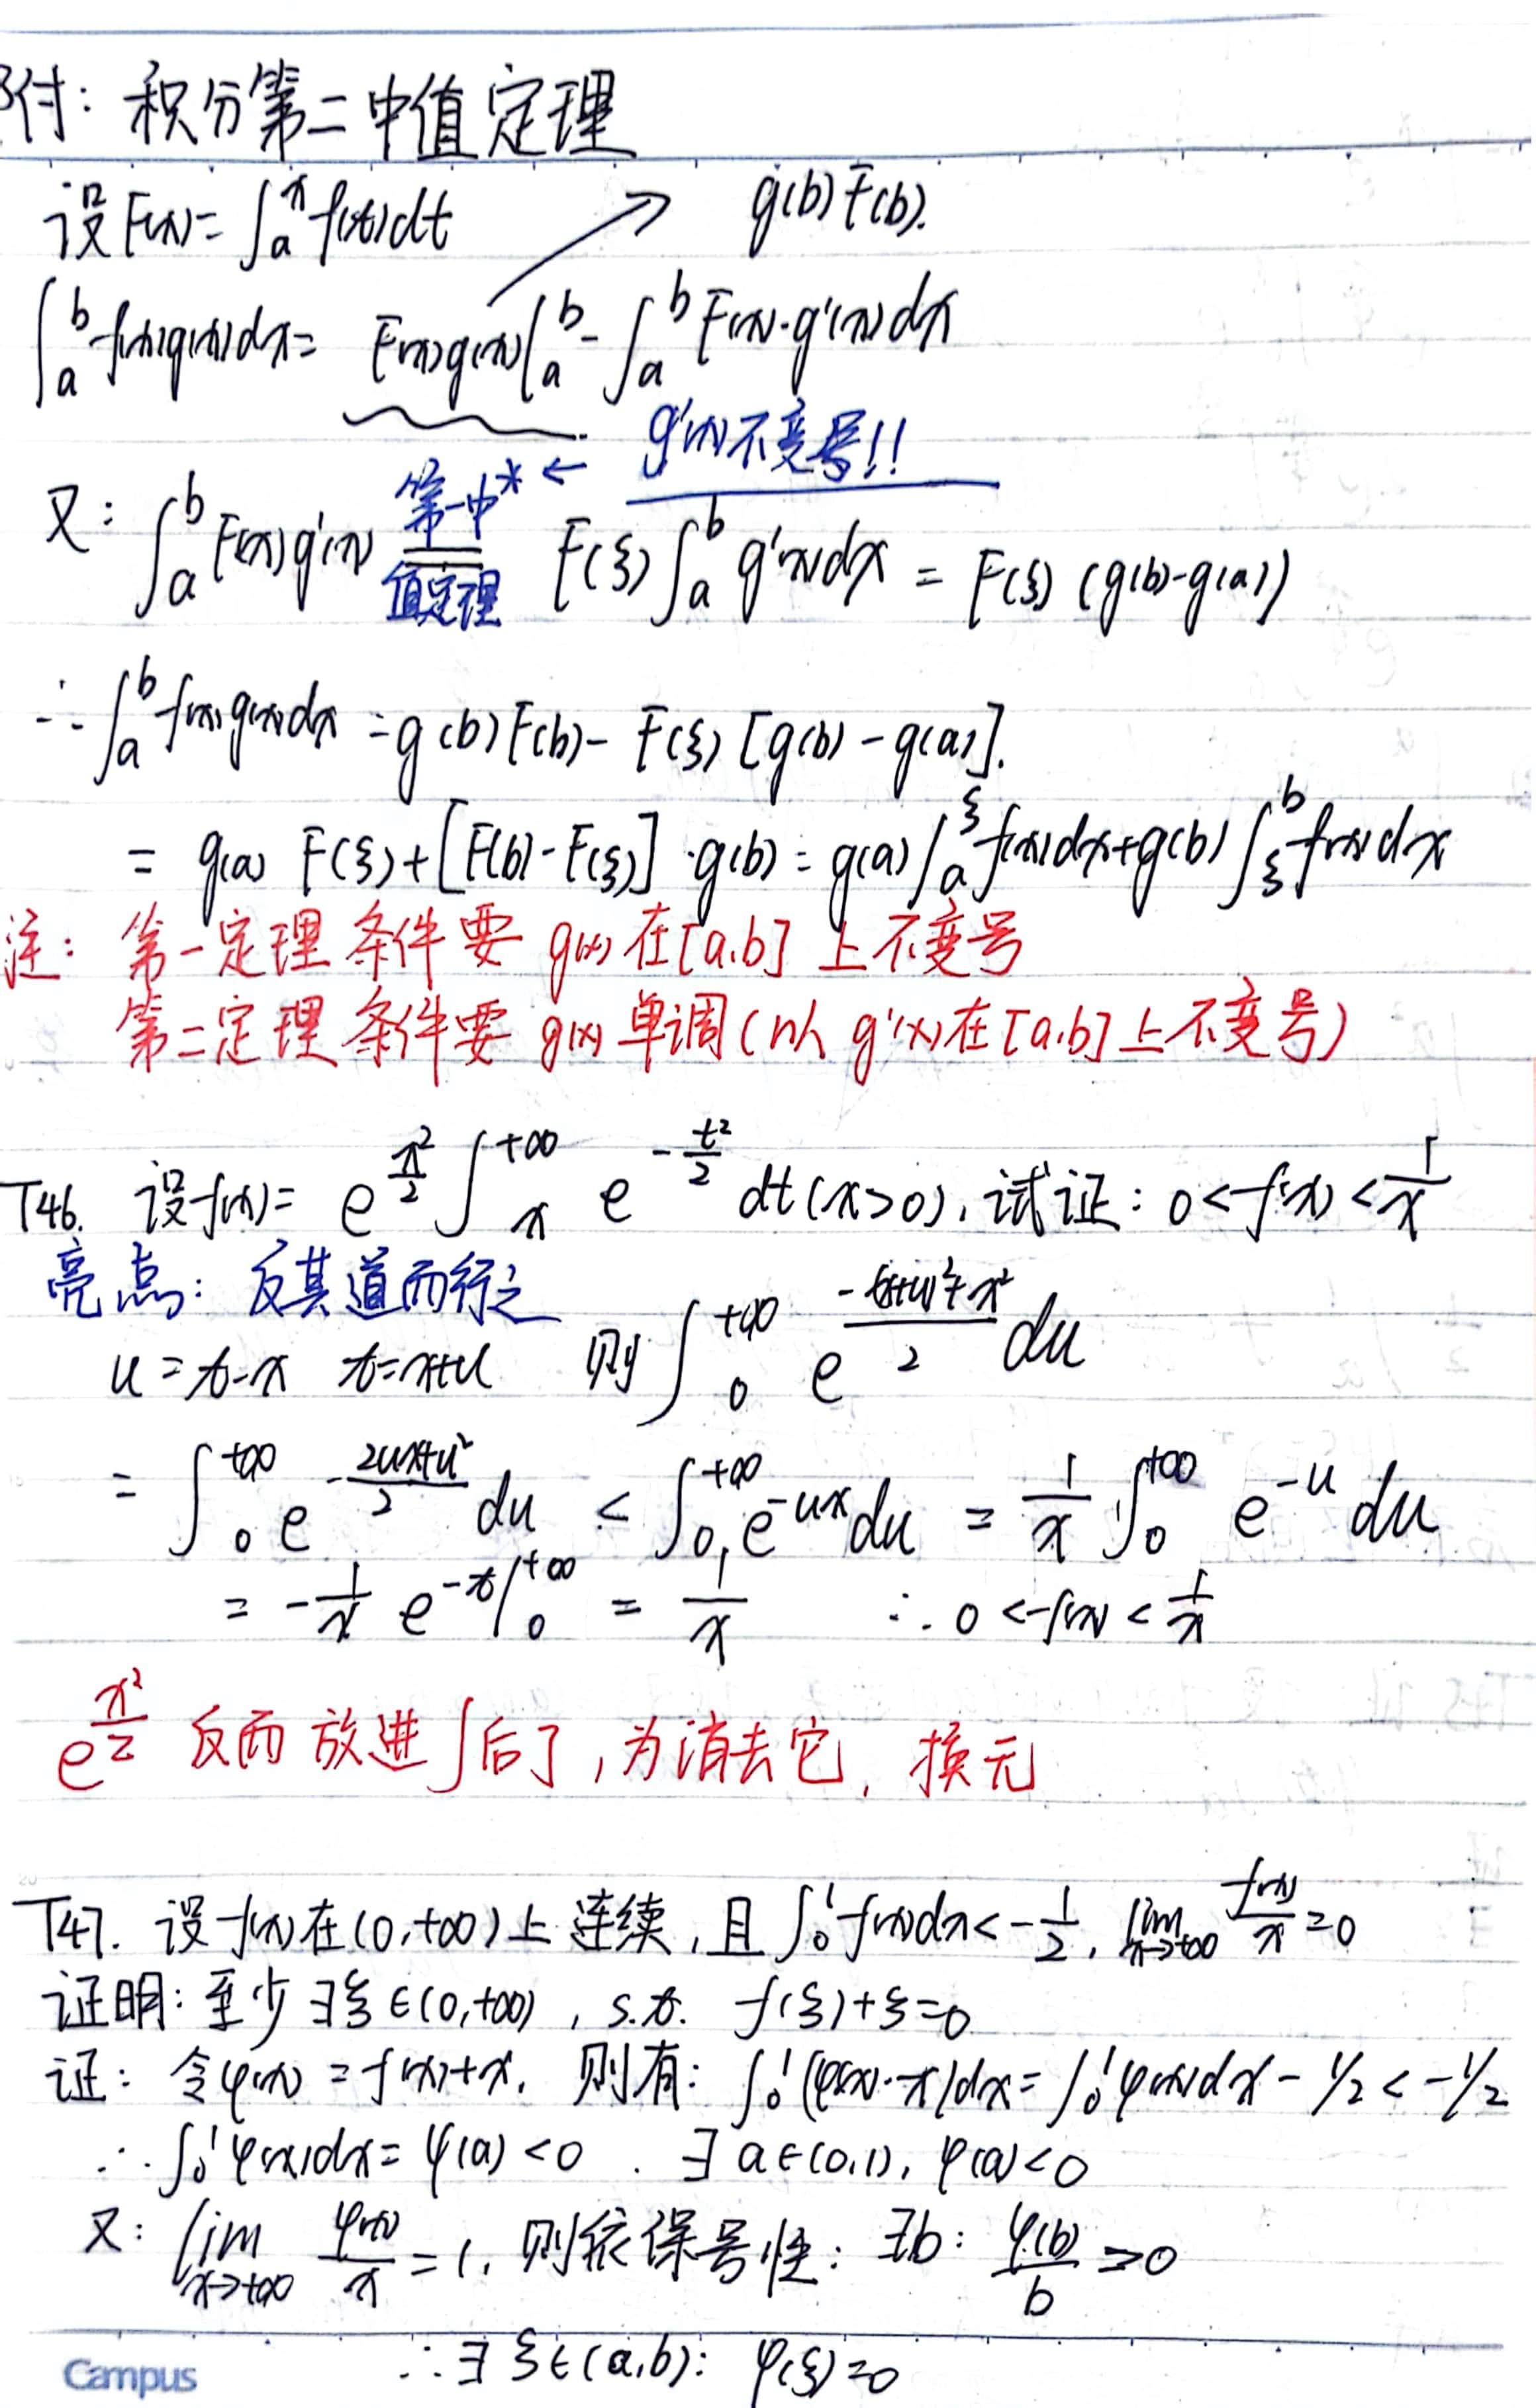 附: 积分第二中值定理
设F(x)=∫_a^x f(t)dt ↗ g(b)F(b).
∫_a^b f(x)g(x)dx= F(x)g(x)|_a^b - ∫_a^b F(x)·g'(x)dx
g'(x)不变号!!
又: ∫_a^b F(x)g'(x) 第一中*←值定理 F(ξ)∫_a^b g'(x)dx = F(ξ) (g(b)-g(a))
∴ ∫_a^b f(x)g(x)dx = g(b)F(b) - F(ξ) [g(b) - g(a)].
= g(a) F(ξ) + [F(b)-F(ξ)] ·g(b) = g(a)∫_a^ξ f(x)dx+g(b)∫_ξ^b f(x)dx
注: 第一定理条件要 g(x) 在[a.b] 上不变号
第二定理条件要 g(x) 单调(以 g'(x)在[a.b]上不变号)
T46. 设f(x)= e^{x²/2} ∫_x^{+∞} e^{-t²/2} dt (x>0), 试证: 0<f(x)<1/x
亮点: 反其道而行之
u=t-x t=x+u 则 ∫_0^{+∞} e^{(-(x+u)²+x²)/2} du
= ∫_0^{+∞} e^{-(2ux+u²)/2} du < ∫_0^{+∞} e^{-ux} du = 1/x ∫_0^{+∞} e^{-u} du
= -1/x e^{-t}|_0^{+∞} = 1/x ∴ 0<f(x)<1/x
e^{x²/2} 反而放进∫后了, 为消去它, 换元
T47. 设f(x)在(0,+∞)上连续, 且∫_0^1 f(x)dx<-1/2, lim_{x→+∞} f(x)/x=0
证明: 至少∃ξ∈(0,+∞), s.t. f(ξ)+ξ=0
证: 令φ(x)=f(x)+x. 则有: ∫_0^1 (φ(x)-x)dx=∫_0^1 φ(x)dx - 1/2 < -1/2
∴ ∫_0^1 φ(x)dx=φ(a)<0. ∃a∈(0,1), φ(a)<0
又: lim_{x→+∞} φ(x)/x = 1, 则依保号性: ∃b: φ(b)/b >0
∴∃ξ∈(a,b): φ(ξ)=0
Campus